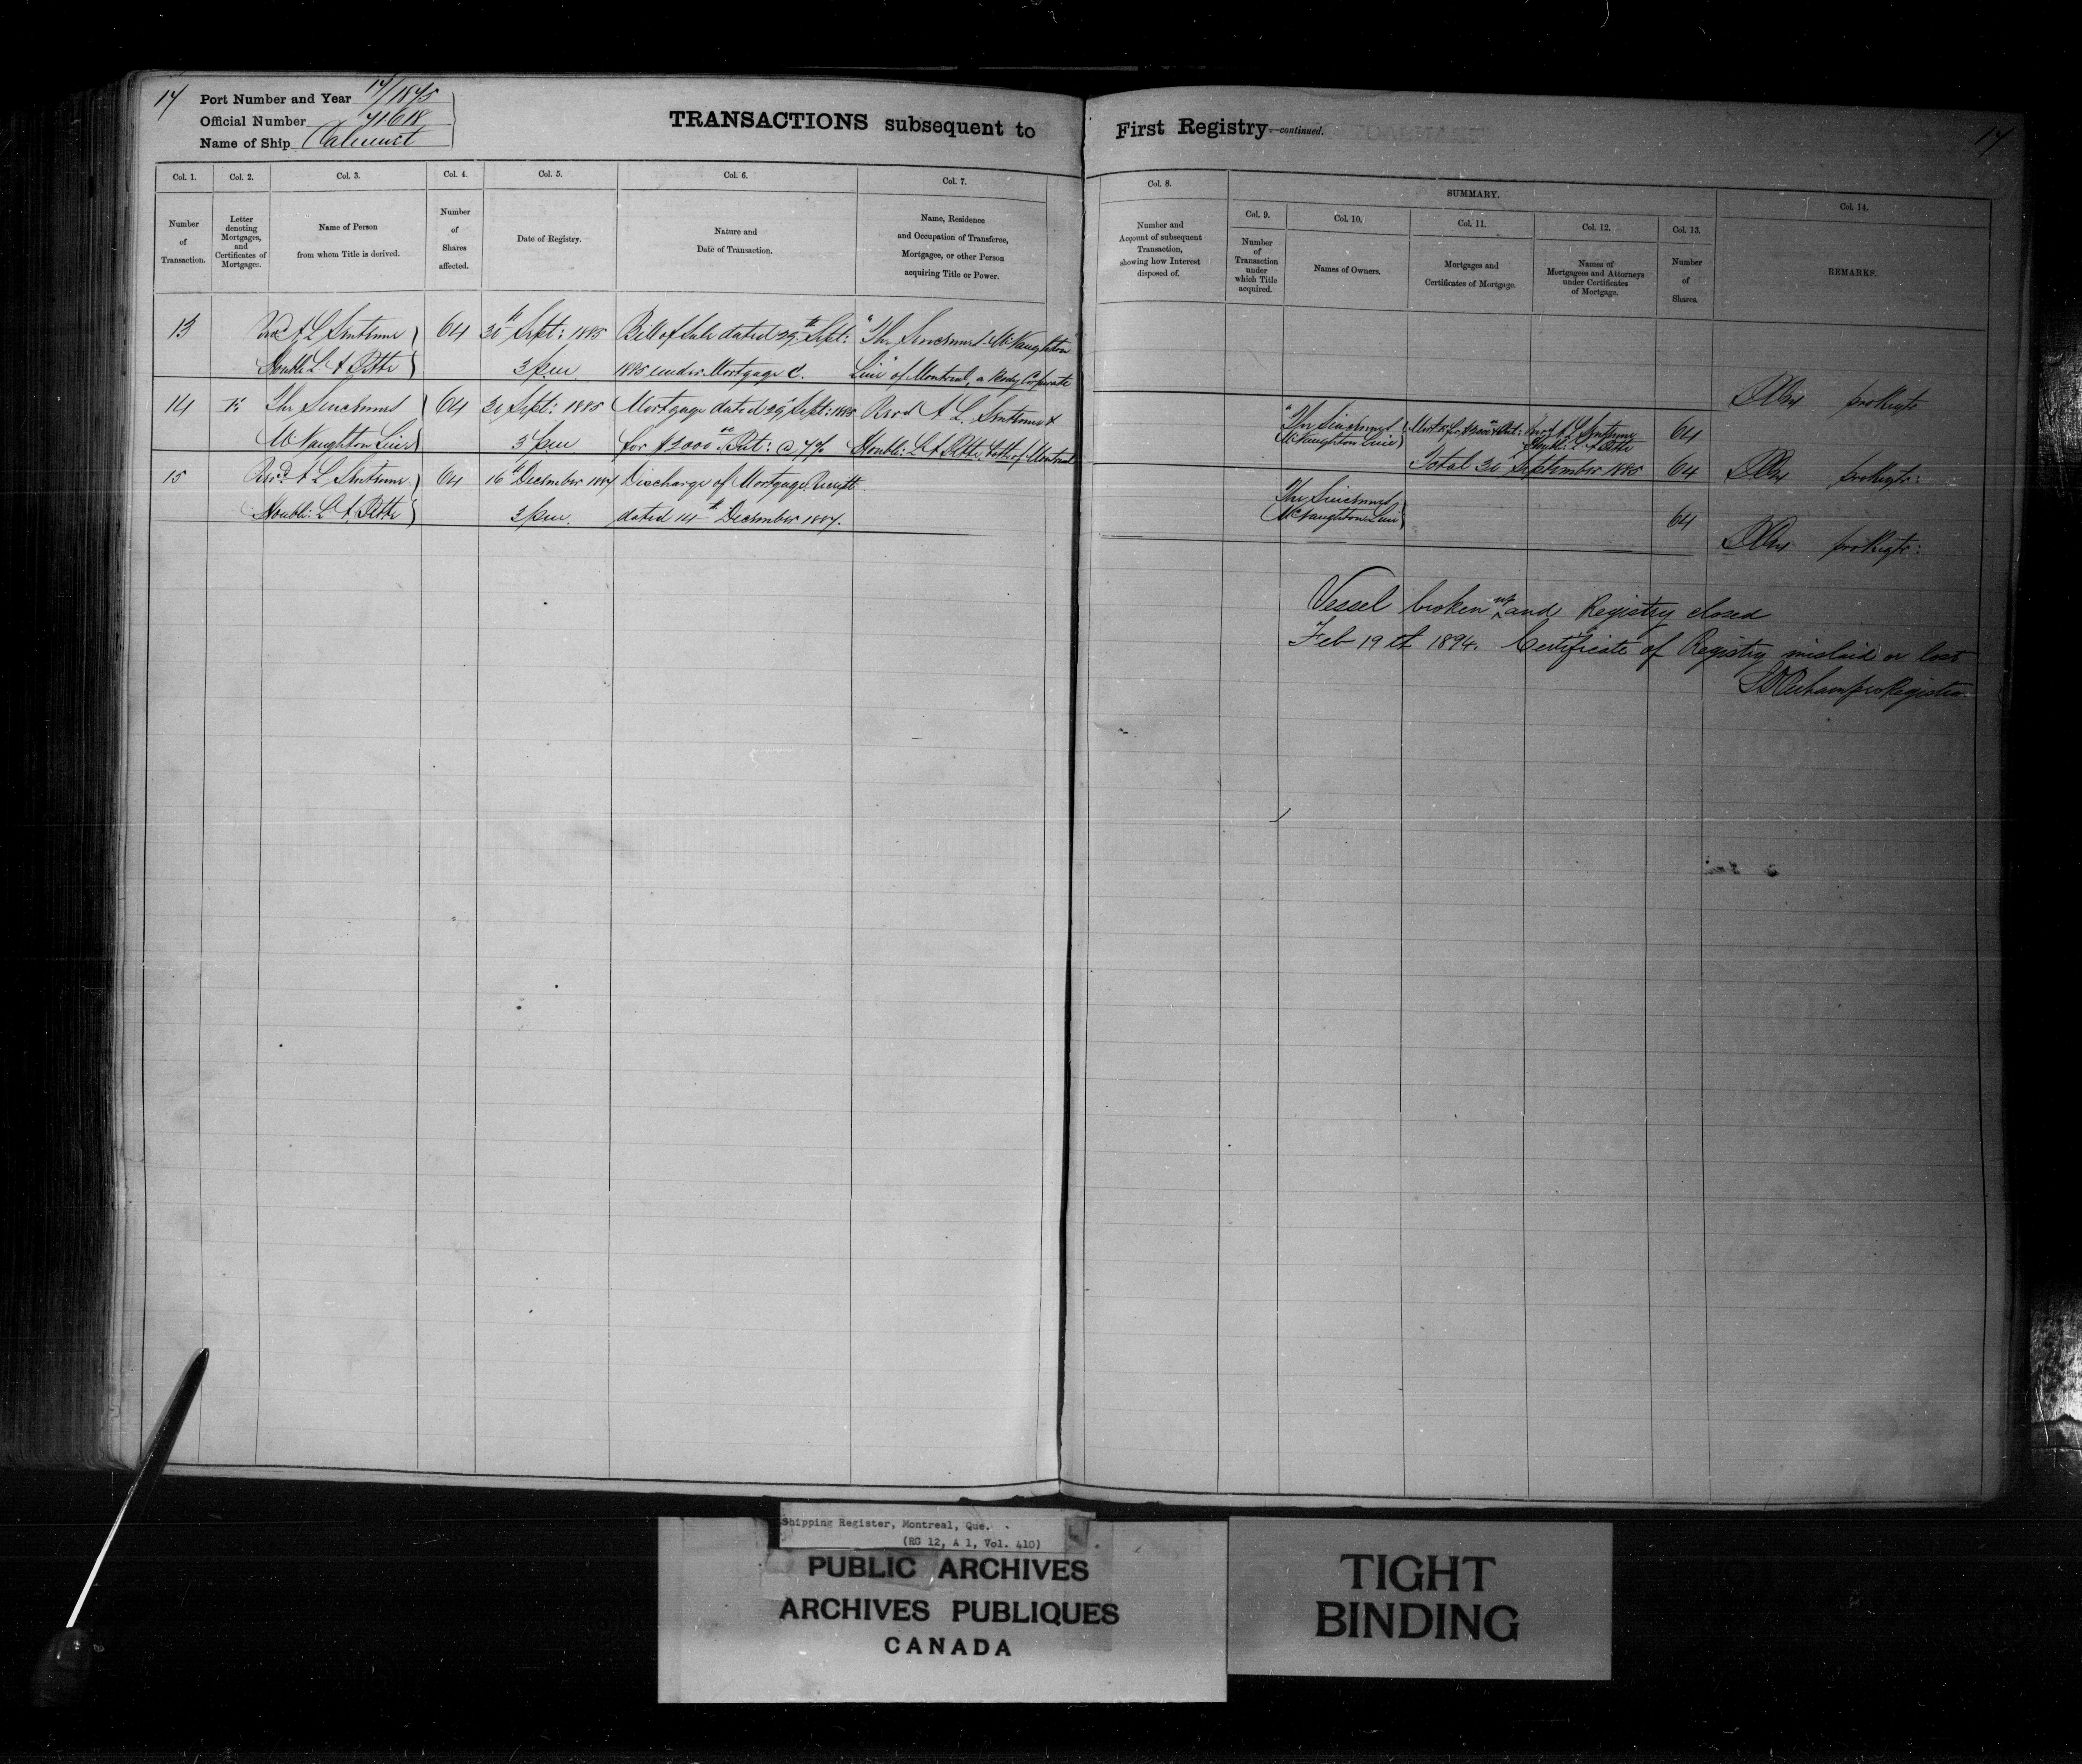 17
Port Number and Year 17/1875
Official Number 71618
Name of Ship Calumet
TRANSACTIONS subsequent to
Col. 1.
Number
of
Transaction.
Col. 2.
Letter
denoting
Mortgages,
and
Certificates of
Mortgage.
Col. 3.
Name of Person
from whom Title is derived.
Col. 4.
Number
of
Shares
affected.
Col. 5.
Date of Registry.
Col. 6.
Nature and
Date of Transaction.
Col. 7.
Name, Residence
and Occupation of Transferee,
Mortgagee, or other Person
acquiring Title or Power.
13 A L 64 30th Sept: 1885 Bill of Sale dated 29th Sept: "The Sincennes McNaughton
Honble L A 3 pm 1885 under Mortgage C. Line" of Montreal, a Body Corporate
14 The Sincennes 64 30 Sept: 1885 Mortgage dated 29th Sept: 1885 A L
McNaughton Line 3 pm for $2000 @ 7% Honble: L A both of Montreal
15 A L 64 16th December 1887 Discharge of Mortgage Receipt
Honble: L A 3 pm. dated 14th December 1887.
First Registry—continued.
17
Col. 8.
Number and
Account of subsequent
Transaction,
showing how Interest
disposed of.
SUMMARY.
Col. 9.
Number
of
Transaction
under
which Title
acquired.
Col. 10.
Names of Owners.
Col. 11.
Mortgages and
Certificates of Mortgage.
Col. 12.
Names of
Mortgagees and Attorneys
under Certificates
of Mortgage.
Col. 13.
Number
of
Shares.
Col. 14.
REMARKS.
pro Regtr
"The Sincennes A L 64
McNaughton Line L A
Total 30 September 1885 64 pro Regtr:
The Sincennes
McNaughton Line 64
pro Regtr:
Vessel broken up and Registry closed
Feb 19th 1894. Certificate of Registry mislaid or lost
pro Registrar
Shipping Register, Montreal, Que.
(RG 12, A 1, Vol. 410)
PUBLIC ARCHIVES
ARCHIVES PUBLIQUES
CANADA
TIGHT
BINDING